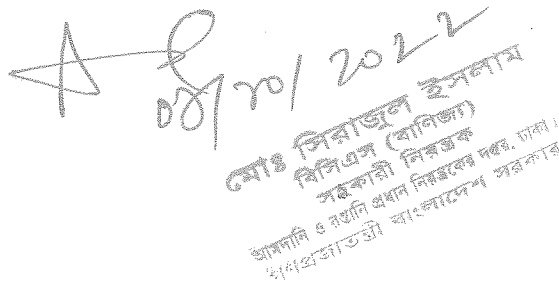 04/10/2022
মোঃ সিরাজুল ইসলাম
বিসিএস (বানিজ্য)
সহকারী নিয়ন্ত্রক
আমদানি ও রপ্তানি প্রধান নিয়ন্ত্রকের দপ্তর, ঢাকা।
গণপ্রজাতন্ত্রী বাংলাদেশ সরকার